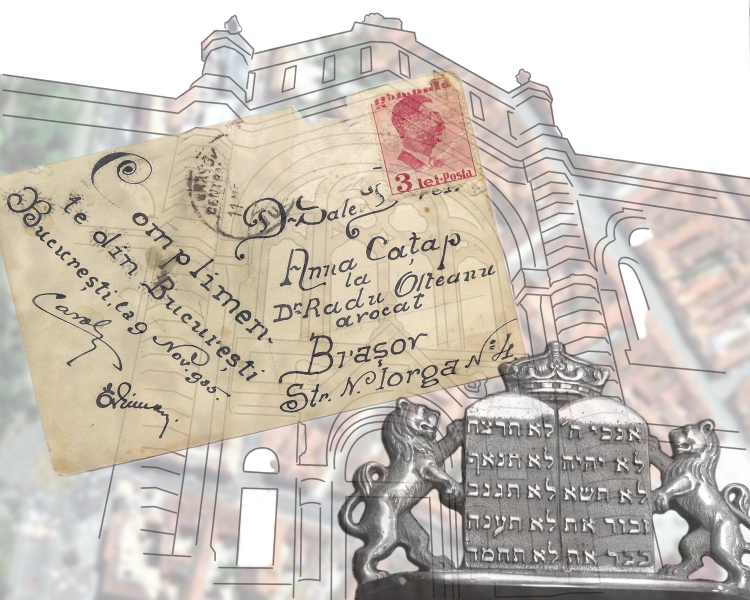 Complimen-
te din București
București, la 9 Nov. 935.
Carol
România
3 lei·Posta
D-Sale
Anna Cațap
la
Dr. Radu Olteanu
avocat
Brașor
Str. N. Iorga Nº 4.
אנכי ה' לא תרצח
לא יהיה לא תנאף
לא תשא לא תגנב
זכור את לא תענה
כבד את לא תחמד